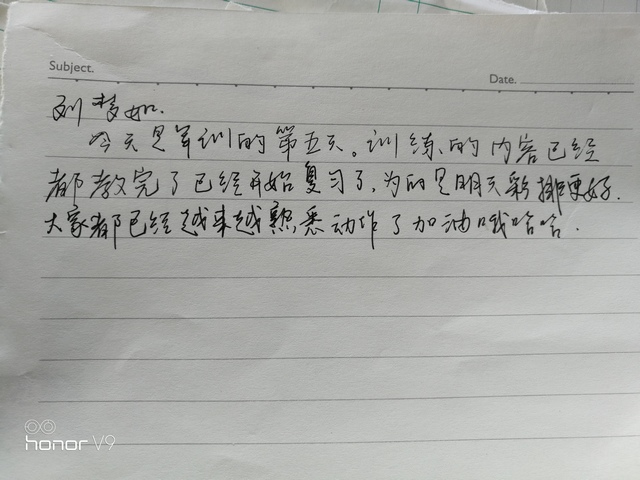 Subject.
Date.
刘梦如.
今天是军训的第五天。训练的内容已经
都教完了已经开始复习了,为的是明天彩排更好.
大家都已经越来越熟悉动作了加油哦哈哈.
honor V9